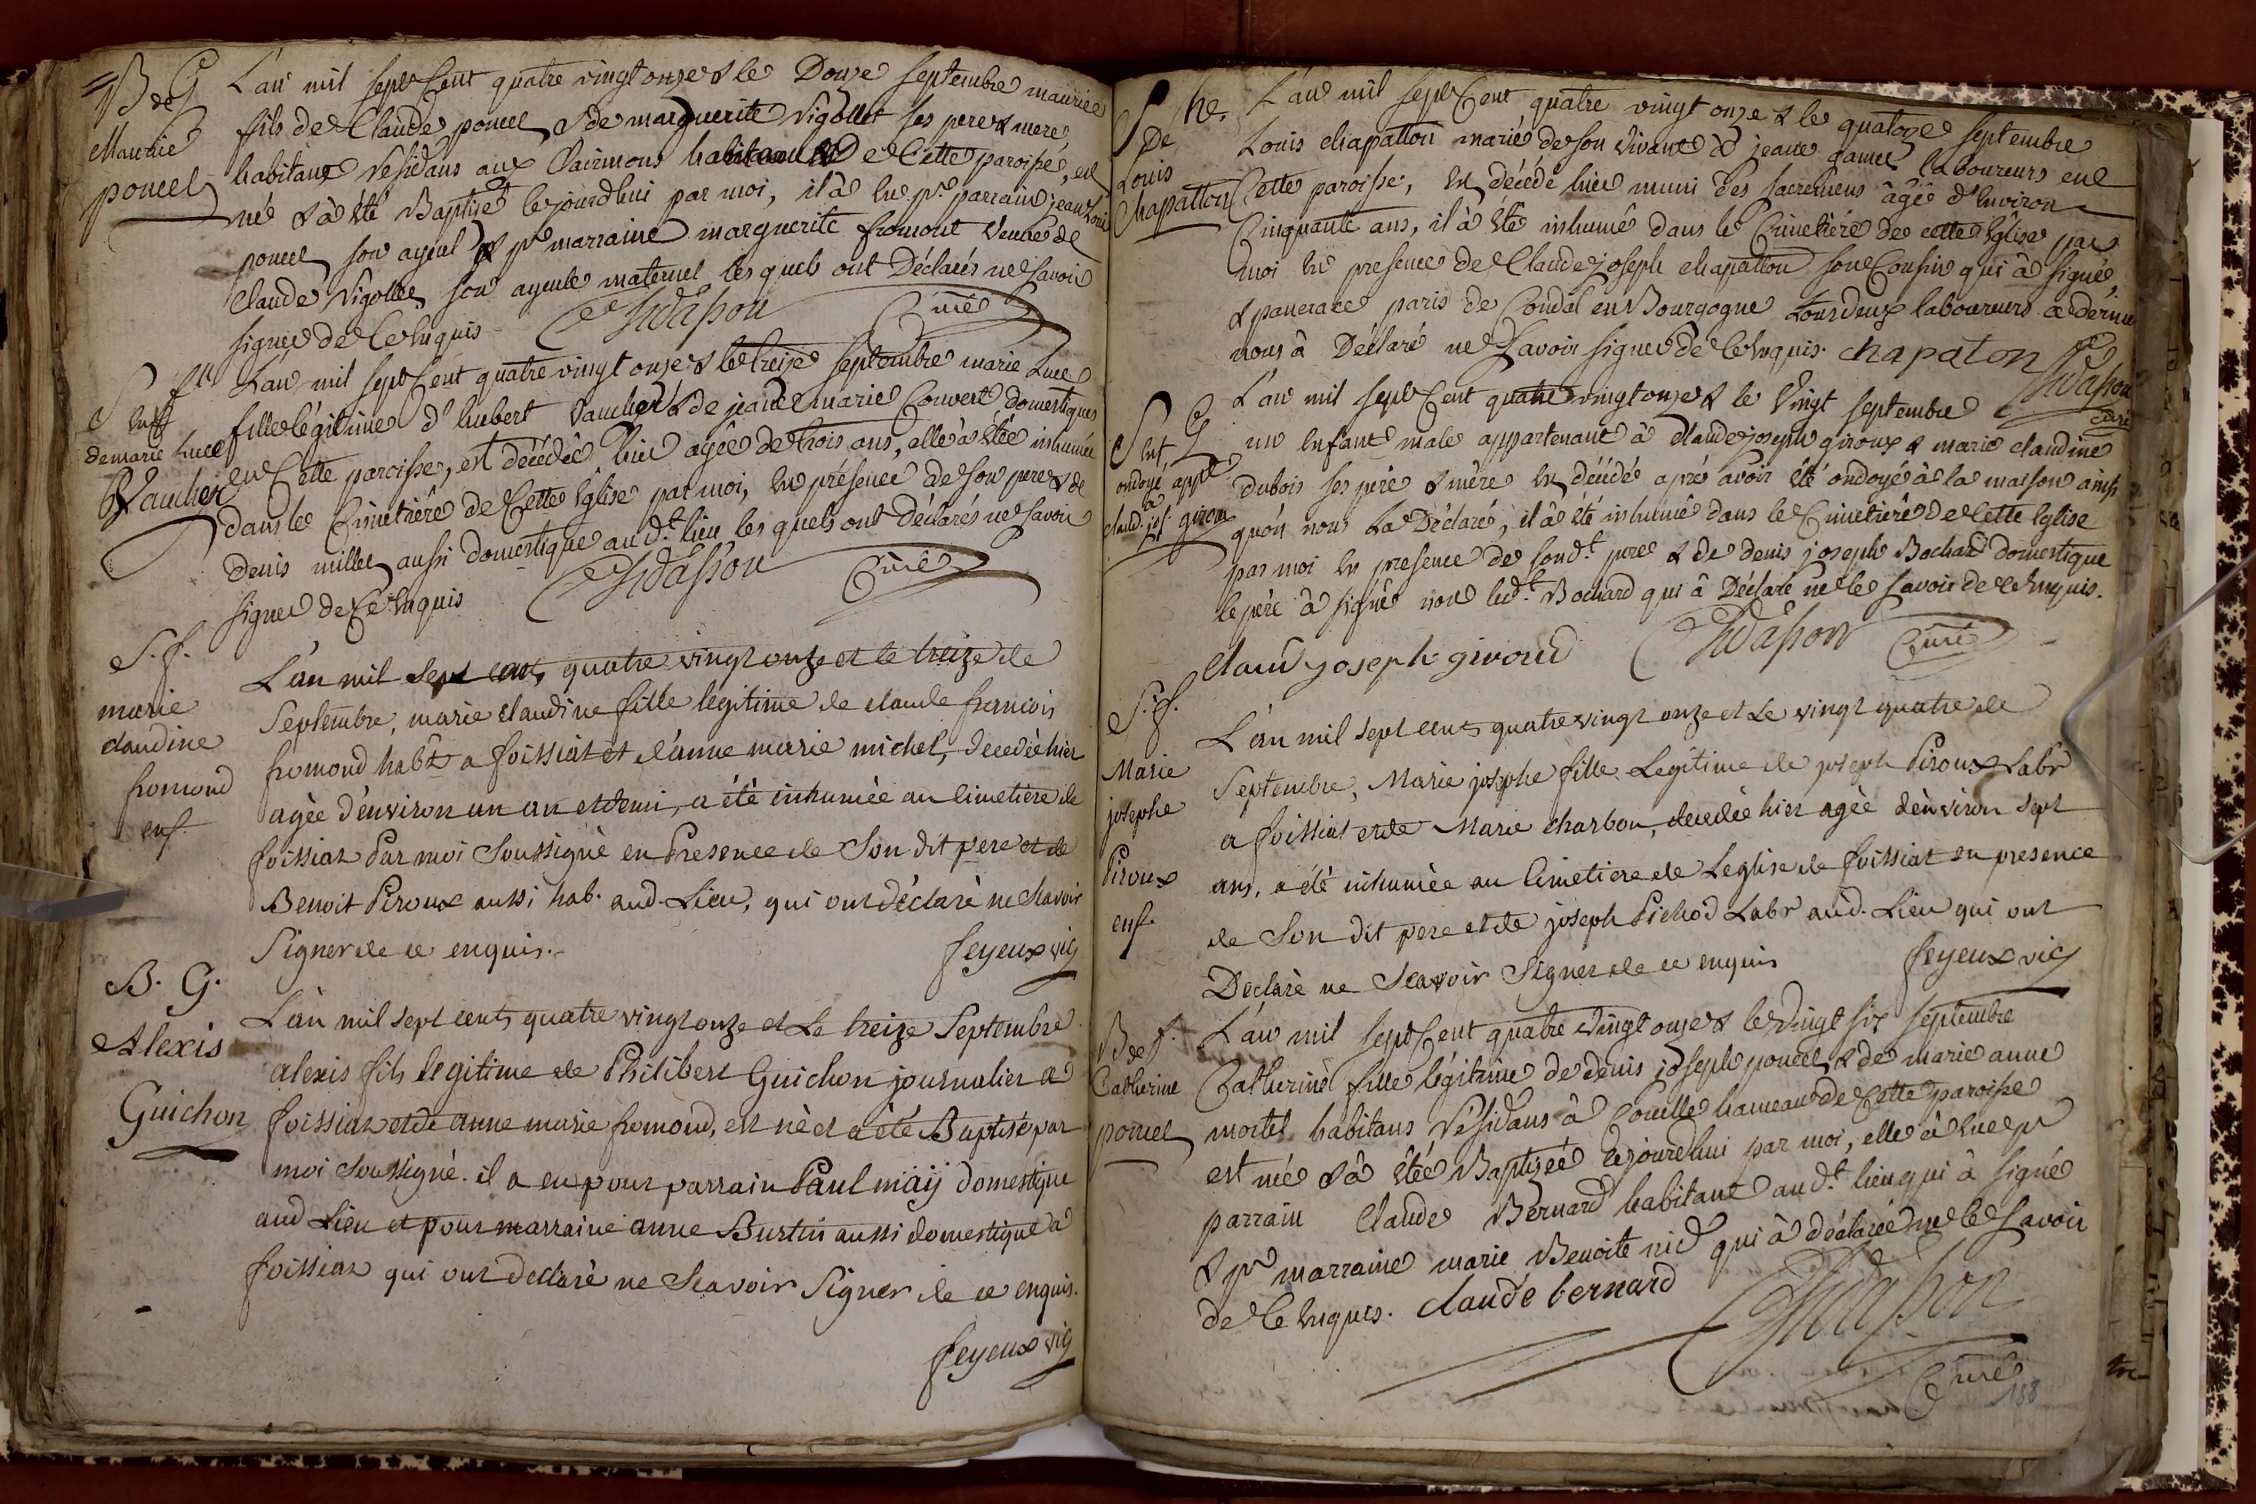 B de G
Maurice
poncet
L'an mil sept Cent quatre vingt onze & le Douze septembre maurice
fils de Claude poncet & de marguerite Vigollet ses pere & mere
habitans residans aux Clairmons de Cette paroisse, est
né & à été Baptisé cejourdhui par moi, il à eu pr. parrain jean Louis
poncet son ayeul & pr marraine marguerite fromont veuve de
Claude Vigollet son ayeule maternel les quels ont Déclarés ne savoir
signer de Ce Enquis
Curé
S fll
enff
de marie Luce
Vaucher
L'an mil sept Cent quatre vingt onze & le treize septembre marie Luce
fille légitime d'hubert Vaucher & de jeanne marie Couvert domestiques
en Cette paroisse, est décédée hier agée de trois ans, elle à étée inhumée
dans le Cimetière de Cette Eglise par moi, en présence de son pere & de
denis millet aussi domestique au dt. lieu les quels ont déclarés ne savoir
signer de Ce Enquis
Curé
S. f.
marie
claudine
fromond
enf.
L'an mil sept cents quatre vingt onze et le treize de
Septembre, marie claudine fille legitime de claude francois
fromond habt a foissiat et d'anne marie michel, decedée hier
agèe d'environ un an et demi, a été inhumèe au Cimetiere de
foissiat Par moi Soussigné en Presence de Son dit pere et de
Benoit Piroux aussi hab. aud. Lieu, qui ont déclarè ne Scavoir
Signer de ce enquis.
feyeux vic
B. G.
Alexis
Guichon
L'an mil sept cents quatre vingt onze et Le treize Septembre
alexis fils legitime de Philibert Guichon journalier a
foissiat et de anne marie fromond, est nè et a été Baptisé par
moi Soussignè. il a eu pour parrain Paul maij domestique
aud Lieu et pour marraine anne Burtin aussi domestique a
foissiat qui ont declarè ne Scavoir Signer de ce enquis.
feyeux vic
S he.
De
Louis
Chapatton
L'an mil sept Cent quatre vingt onze & le quatorze septembre
Louis chapatton marié de son vivant à jeanne gamet laboureurs en
Cette paroisse, est décédé hier muni des sacremens âgé d'Environ
Cinquante ans, il à été inhumé dans le Cimetière de cette Eglise par
moi en presence de Claude joseph chapatton son Cousin qui à signé,
& pancrace paris de Condal en Bourgogne tous deux laboureurs ce dernier
nous à Déclaré ne savoir signer de Ce Enquis. chapaton
Curé
S G
ent
ondoyé appt
à
claud. jos. giroux
L'an mil sept Cent quatre vingt onze & le Vingt septembre
un Enfant male appartenant à claude joseph giroux & marie claudine
dubois ses père & mère est décédé aprè avoir été ondoyé à la maison ainsi
qu'on nous La Déclaré, il à été inhumé dans le Cimetière de Cette Eglise
par moi en presence de sondt. pere & de denis joseph Bochard domestique
le père à signé non ledt. Bochard qui à Déclaré ne le savoir de ce Enquis.
claud joseph giroud
Curé
S. f.
Marie
josephe
Piroux
enf.
L'an mil sept cents quatre vingt onze et Le vingt quatre de
Septembre, Marie josephe fille Legitime de joseph Piroux Labr
a foissiat et de Marie charbon, decedèe hier agèe d'environ sept
ans, a été inhumèe au Cimetiere de Leglise de foissiat en presence
de Son dit pere et de joseph Pichod Labr aud. Lieu qui ont
Declarè ne Scavoir Signer de ce enquis
feyeux vic
B de f.
Catherine
poncet
L'an mil sept Cent quatre Vingt onze & le Vingt six septembre
Catherine fille légitime de denis joseph poncet & de marie anne
mortel habitans résidans à Couelle hameau de Cette paroisse
est née & à étée Baptizée cejourdhui par moi, elle à eue pr
parrain Claude Bernard habitant au dt. lieu qui à signé
& pr marraine marie Benoite nid qui à déclarée ne le savoir
de Ce Enquis. claude bernard
Curé
188